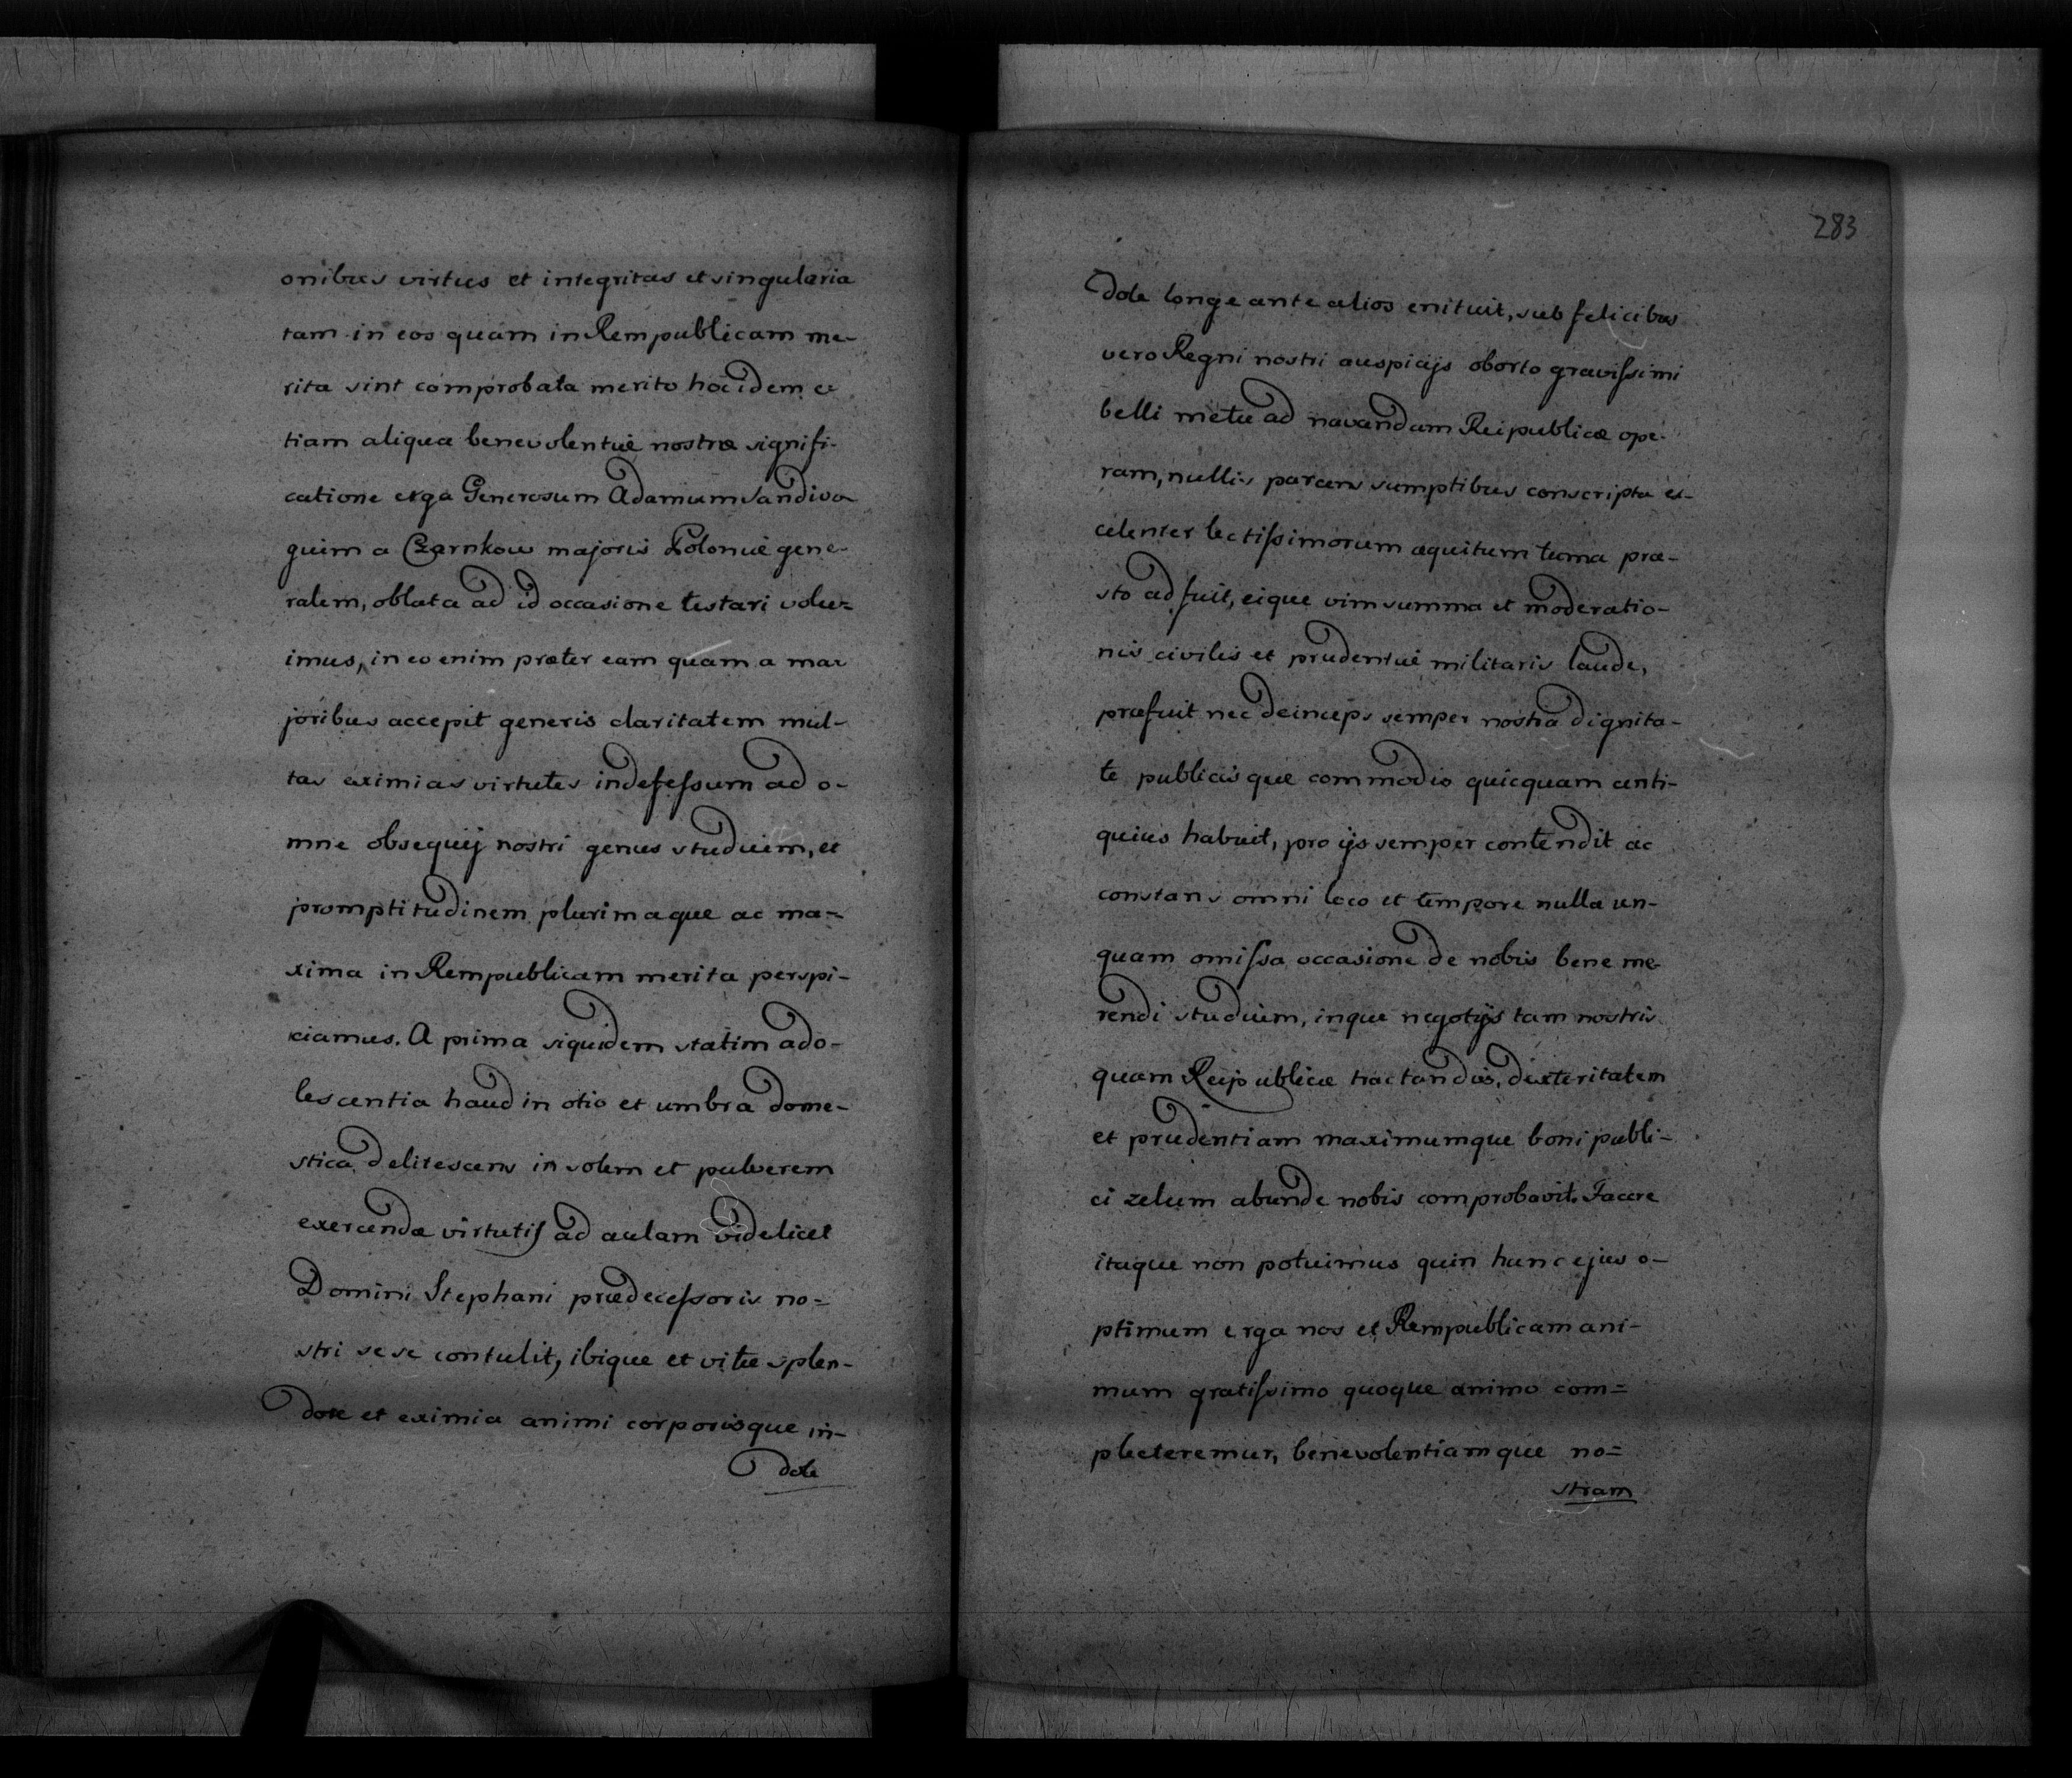 onibus virtus et integritas et singularia
tam in eos quam in Rempublicam me-
rita sint comprobata merito hoc idem e-
tiam aliqua benevolentiæ nostræ signifi-
catione erga Generosum Adamum Sandivo-
gium a Czarnkow majoris Poloniæ gene-
ralem, oblata ad id occasione testari volu=
imus, in eo enim præter eam quam a ma-
joribus accepit generis claritatem mul-
tas eximias virtutes indefeſsum ad o-
mne obsequij nostri genus studium, et
promptitudinem plurimaque ac ma=
xima in Rempublicam merita perspi-
ciamus. A prima siquidem statim ado-
lescentia haud in otio et umbra dome-
stica delitescens in solem et pulverem
exercendæ virtutiſ ad aulam videlicet
Domini Stephani prædeceſsoris no=
stri sese contulit, ibique et vitæ splen-
dore et eximia animi corporisque in-
dole
283
dole longe ante alios enituit, sub felicibus
vero Regni nostri auspicijs oborto graviſsimi
belli metu ad navandam Reipublicæ ope-
ram, nullis parcens sumptibus conscripta ex-
celenter lectiſsimorum æquitum turma præ-
sto adfuit, eique vim summa et moderatio-
nis civilis et prudentiæ militaris laude,
præfuit nec deinceps semper nostra dignita-
te publicisque commodis quicquam anti-
quius habuit, pro ijs semper contendit ac
constans omni loco et tempore nulla un-
quam omiſsa occasione de nobis bene me-
rendi studium, inque negotijs tam nostris
quam Reipublicæ tractandis, dexteritatem
et prudentiam maximumque boni publi-
ci zelum abunde nobis comprobavit. Facere
itaque non potuimus quin hunc ejus o-
ptimum erga nos et Rempublicam ani-
mum gratiſsimo quoque animo com=
plecteremur, benevolentiamque no=
stram